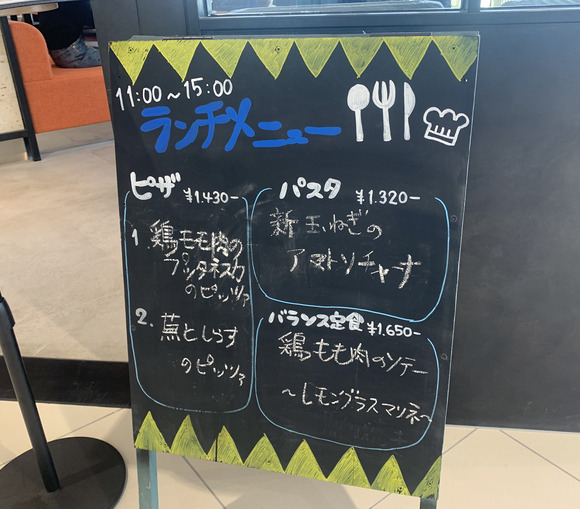 11:00～15:00
ランチメニュー
ピザ ¥1.430-
1 鶏モモ肉の
プッタネスカ
のピッツァ
2. 蕪としらす
のピッツァ
パスタ ¥1.320-
新玉ねぎの
アマトリチャーナ
バランス定食 ¥1.650-
鶏もも肉のソテー
～レモングラスマリネ～